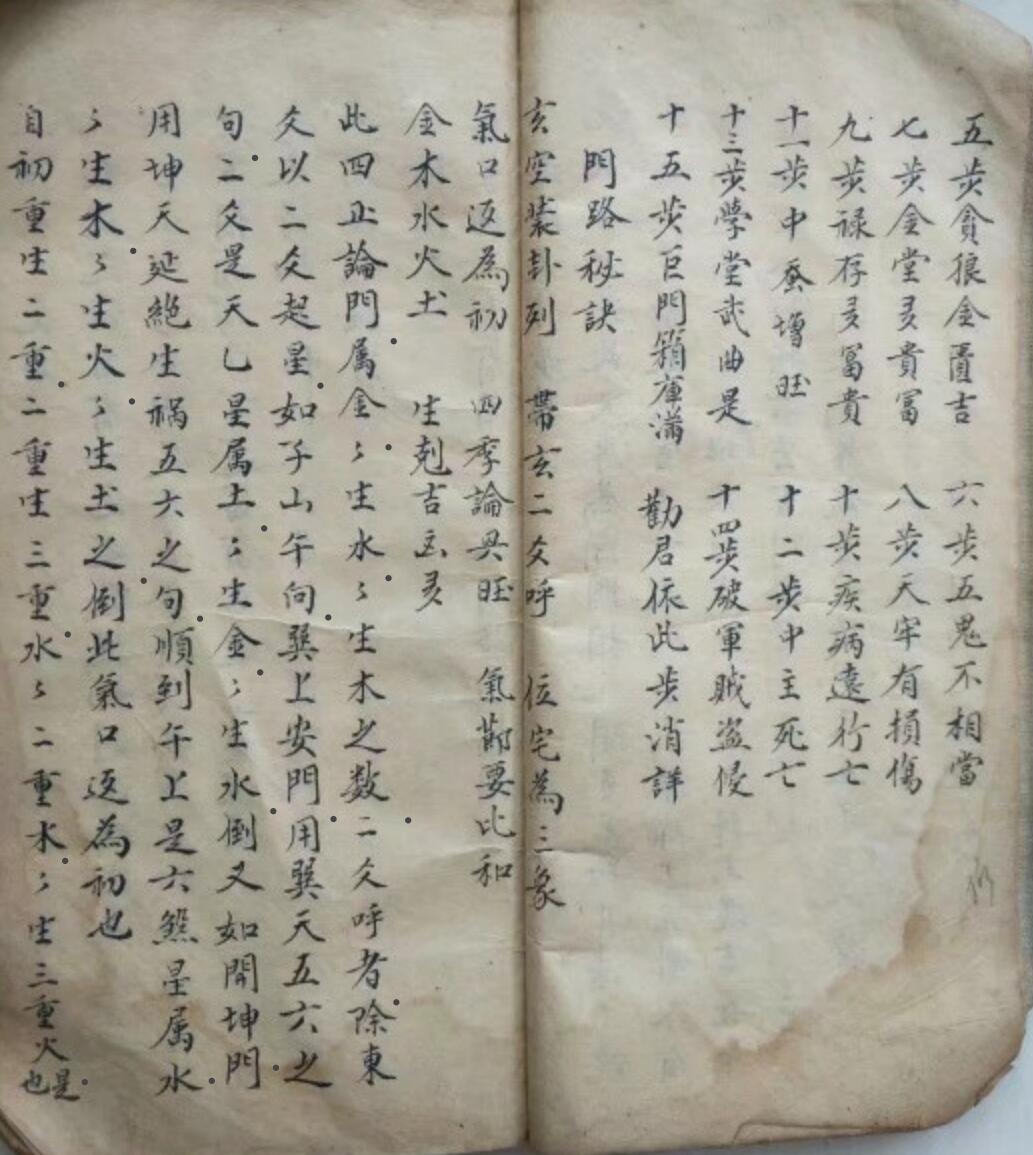 五步貪狼金匱吉　六步五鬼不相當
七步金堂多貴富　八步天牢有損傷
九步祿存多冨貴　十步疾病遠行亡
十一步中蚕增旺　十二步中主死亡
十三步學堂武曲是　十四步破軍賊盜侵
十五步巨門箱庫滿　勸君依此步消詳
門路秘訣
亥空裝卦列　帶亥二爻呼　位宅為三象
氣口返為初　四季論興旺　氣都要比和
金木水火土　生剋吉凶多
此四止論門属金〻生水〻生木之数二爻呼者除東
爻以二爻起星如子山午向巽上安門用巽天五六之
句二爻是天乙星属土〻生金〻生水倒又如開坤門
用坤天延絶生禍五六之句順到午上是六煞星属水
〻生木〻生火〻生土之倒此氣口返為初也
自初重生二重二重生三重水〻二重木〻生三重火是也